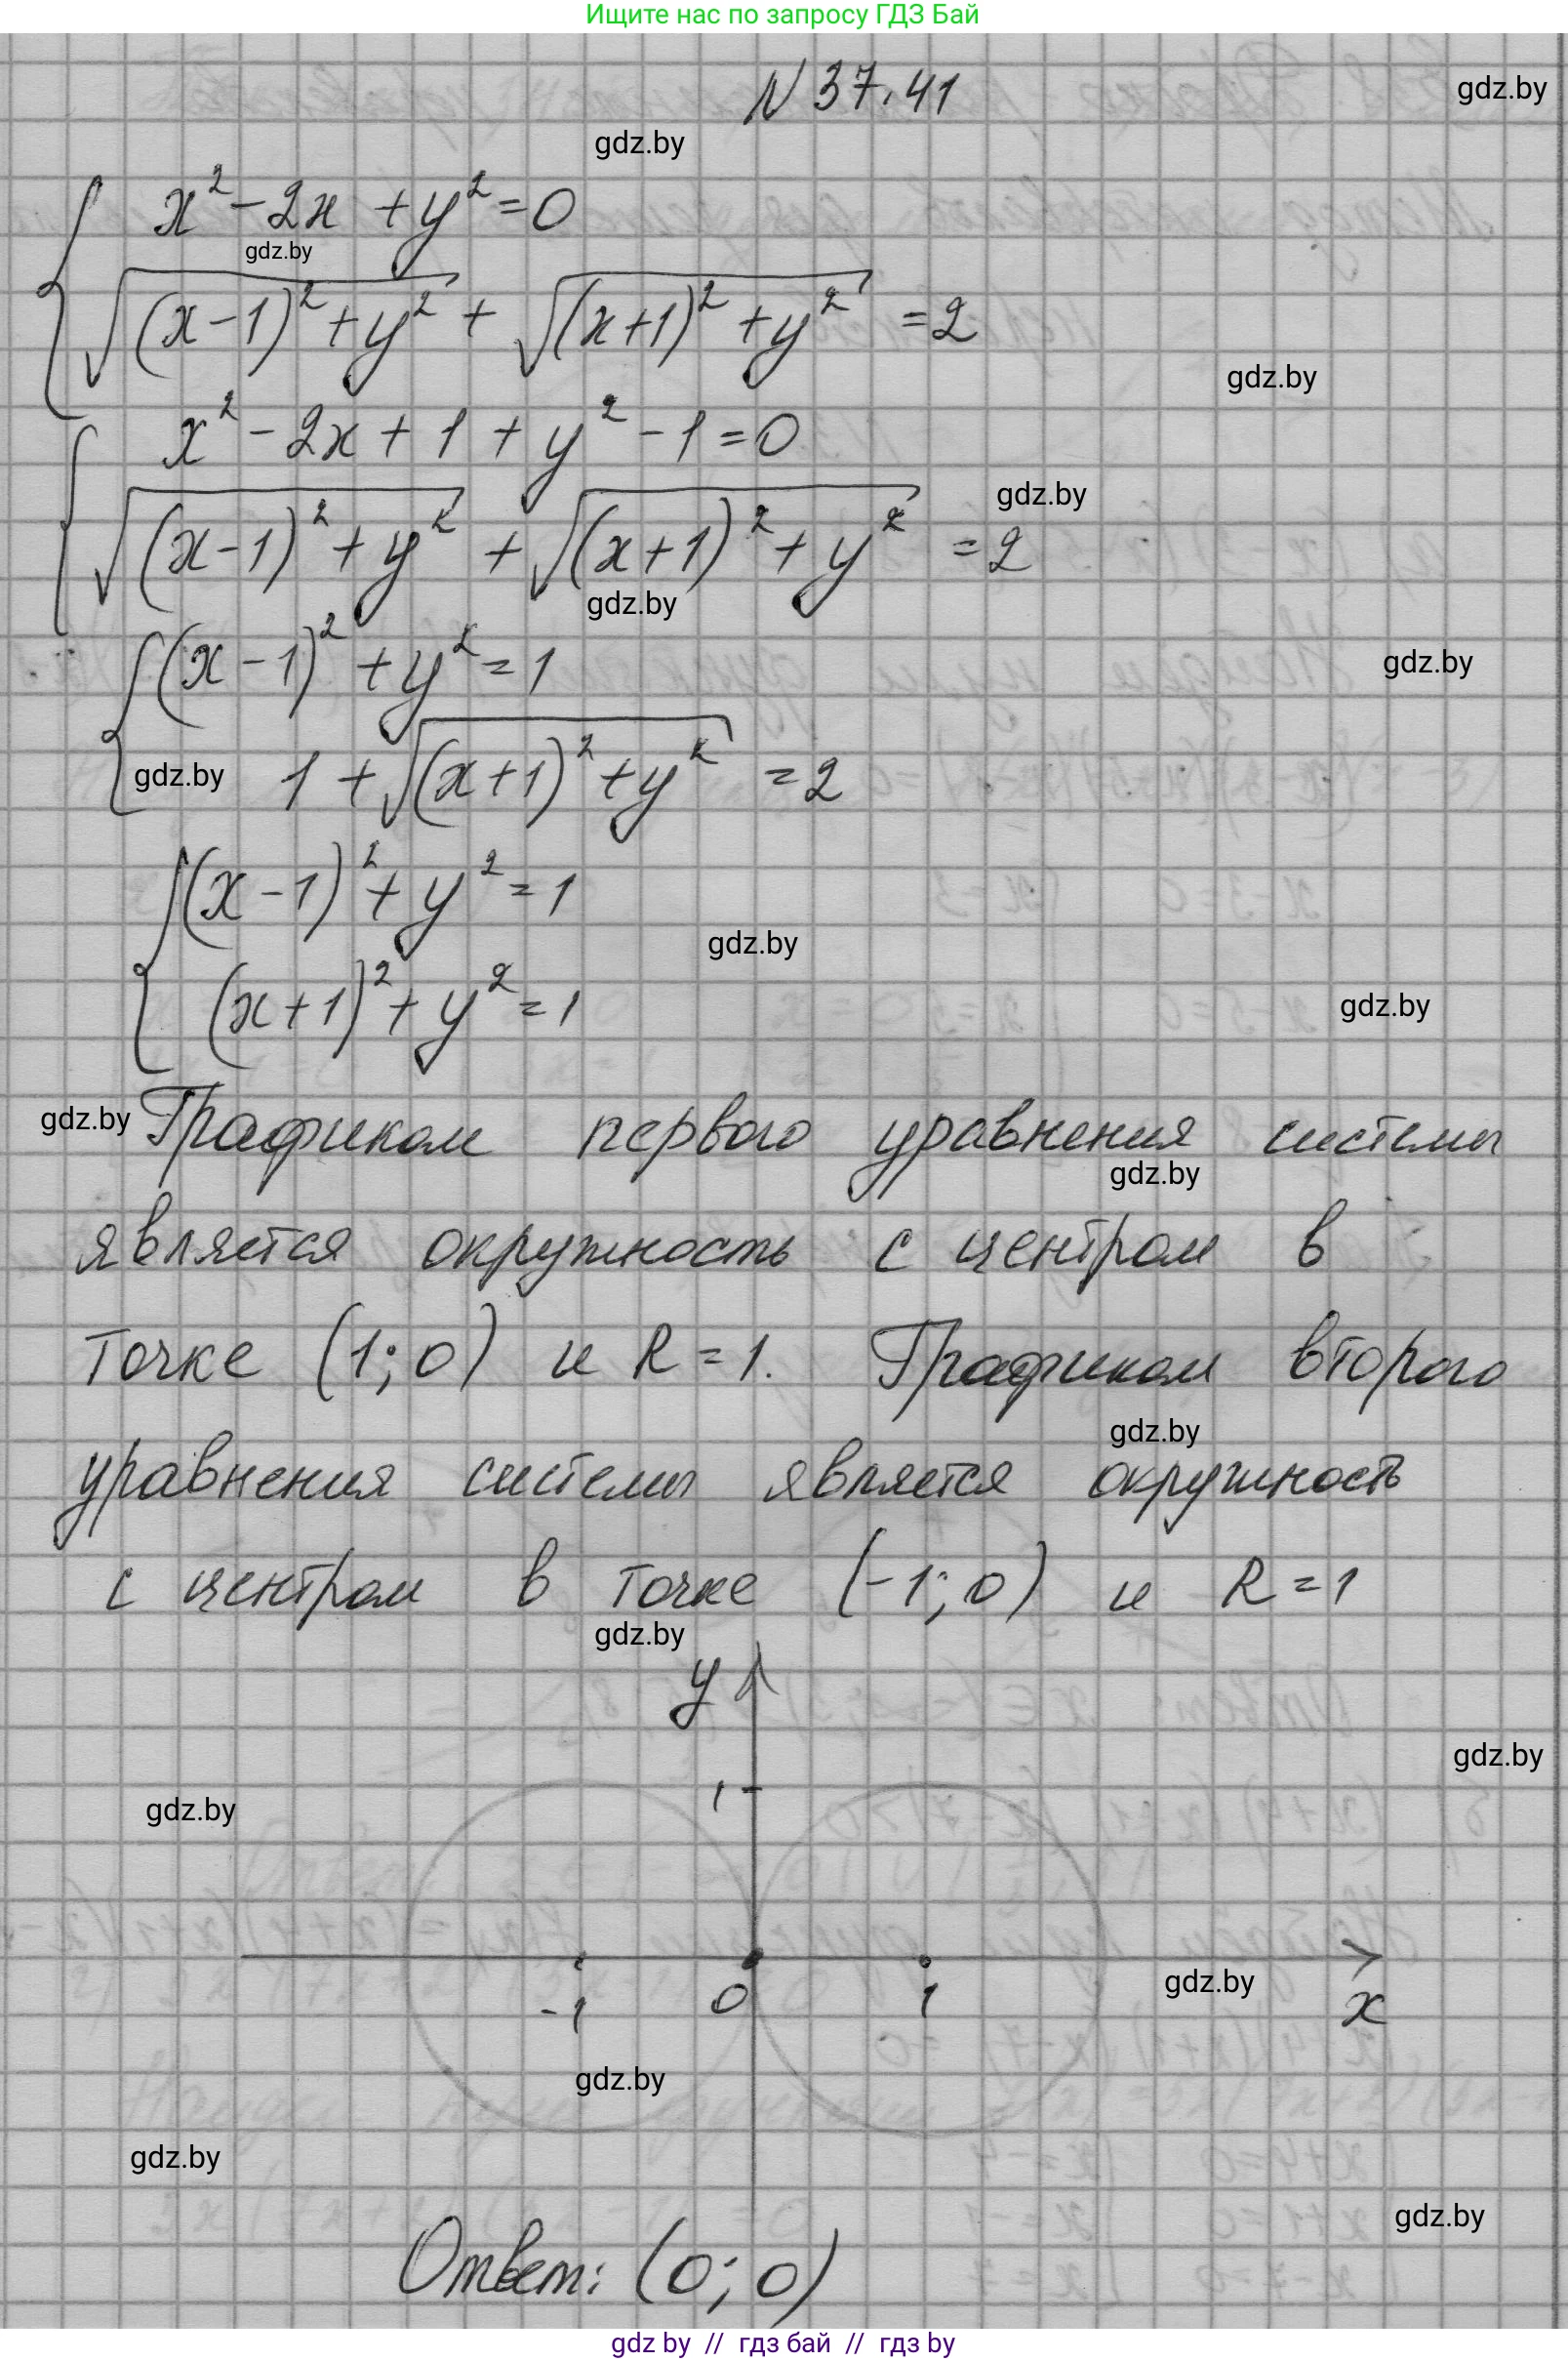 Ищите нас по запросу ГДЗ Бай
N 37.41
gdz.by
gdz.by
x² - 2x + y² = 0
gdz.by
√((x-1)² + y²) + √((x+1)² + y²) = 2
gdz.by
x² - 2x + 1 + y² - 1 = 0
gdz.by
√((x-1)² + y²) + √((x+1)² + y²) = 2
gdz.by
(x-1)² + y² = 1
gdz.by
gdz.by 1 + √((x+1)² + y²) = 2
(x-1)² + y² = 1
gdz.by
(x+1)² + y² = 1
gdz.by
gdz.by Графиком первого уравнения системы
gdz.by
является окружность с центром в
точке (1; 0) и R = 1. Графиком второго
gdz.by
уравнения системы является окружность
с центром в точке (-1; 0) и R = 1
gdz.by
y
gdz.by
1
gdz.by
gdz.by
-1 0 1 x
gdz.by
gdz.by
gdz.by
Ответ: (0; 0)
gdz by // гдз бай // гдз by